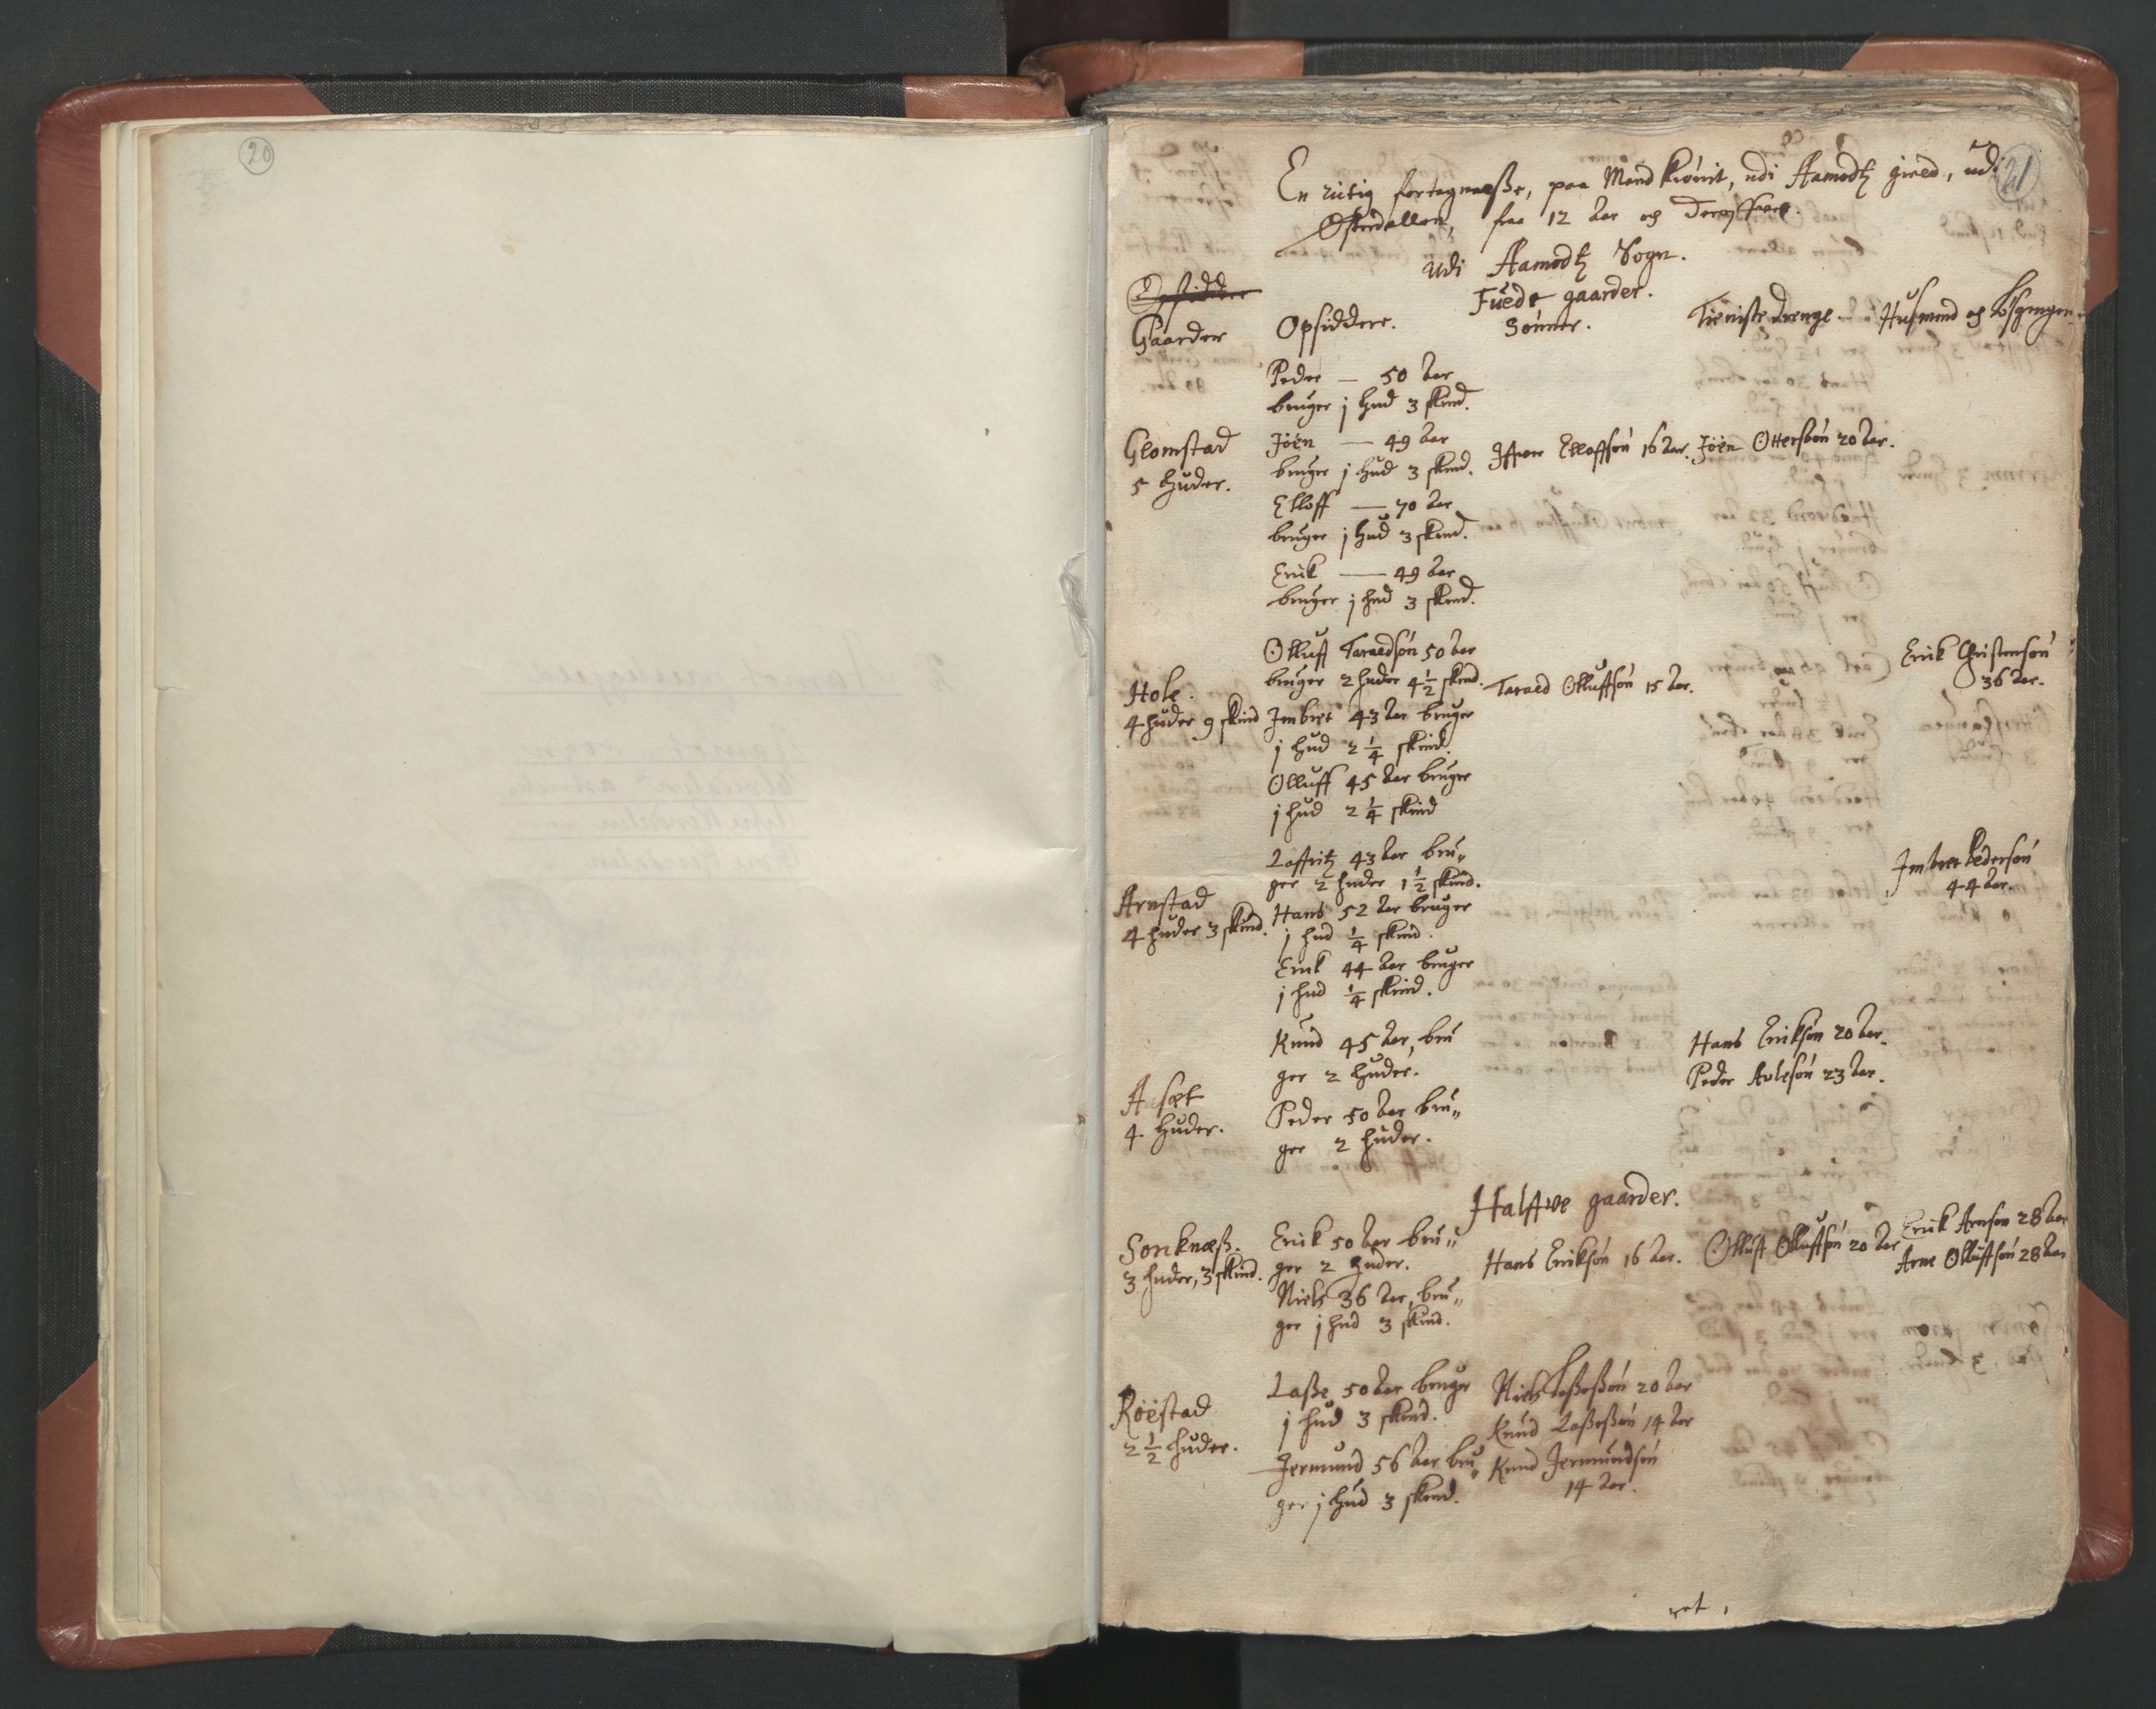 20
21
En rictig fortegnneße, paa Mandkiønit, udi Aamodtz gield, udi
Østerdallen, fra 12 aar och
Udi Aamodtz Sogn.
Fuede gaarder.
Opsiddere
Gaarder Opsiddere. Sønner. Tienistedrenge. Husmend och Løsgengere
Peder — 50 aar
bruger j hud 3 skind.
Glomstad Jöen — 49 aar Iffuer Elloffsön 16 aar. Jöen Ottersön 20 aar.
5 huder. bruger j hud 3 skind.
Elloff — 70 aar
bruger j hud 3 skind.
Erik — 49 aar
bruger j hud 3 skind.
Olluff Taraldsön 50 aar Erik Christensön
Hole. bruger 2 huder 4 1/2 skind. Tarald Olluffsön 15 aar. 36 aar.
4 huder 9 skind Imbret 43 aar bruger
j hud 2 1/4 skind.
Olluff 45 aar bruger
j hud 2 1/4 skind
Laffritz 43 aar bru„ Imbret Pedersön
ger 2 huder 1 1/2 skind. 44 aar.
Arnstad Hans 52 aar bruger
4 huder 3 skind. j hud 1/4 skind.
Erik 44 aar bruger
j hud 1/4 skind.
Knud 45 aar, bru Hans Eriksön 20 aar.
ger 2 huder. Peder Avlesön 23 aar.
Aaset Peder 50 aar bru„
4. huder. ger 2 huder.
Halffue gaarder.
Sorknæß. Erik 50 aar bru„ Hans Eriksön 16 aar. Olluff Olluffsön 20 aar Erik Arnesön 28 aar
3 huder, 3 skind. ger 2 huder. Arne Olluffsön 28 aar
Niels 36 aar, bru„
ger j hud 3 skind.
Laße 50 aar bruger Niels Laßesön 20 aar
Röestad j hud 3 skind. Knud Laßesön 14 aar
2 1/2 huder. Jermund 56 aar bru„ Knud Jermundsön
ger j hud 3 skind. 14 aar.